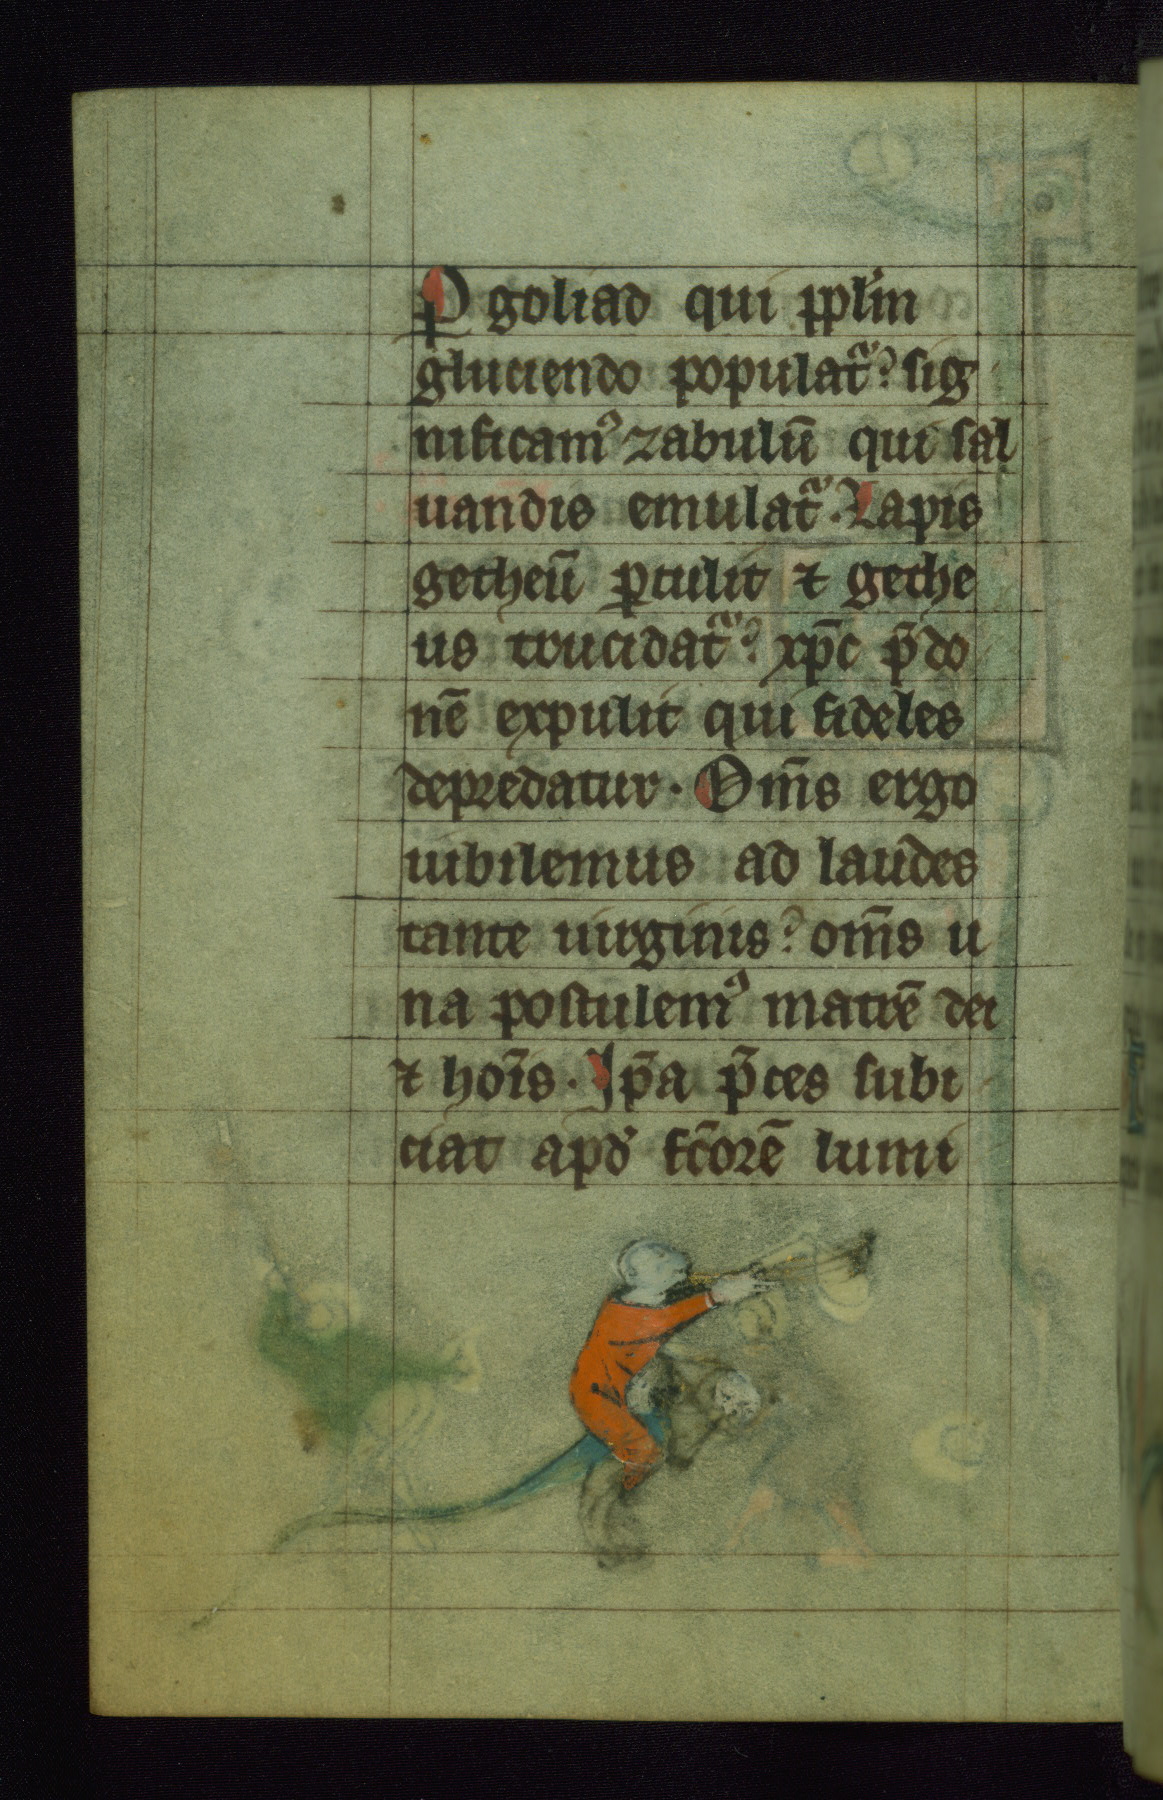 P goliad qui pplīn
gluciendo populat᷑ᵃ? sig
nificamꝰ zabulū qui sal
uandis emulat᷑ᵃ. Lapis
getheū ꝑtulit ⁊ gethe
us trucidat᷑ᵃ? xp̄c p̄do
nē expulit qui fideles
depredatur. Om̄s ergo
iubilemus ad laudes
tante uirginis? om̄s u
na postulemꝰ matrē dei
⁊ hoīs. Ip̄a p̄ces subi
ciat apd' fc̄orē lumi